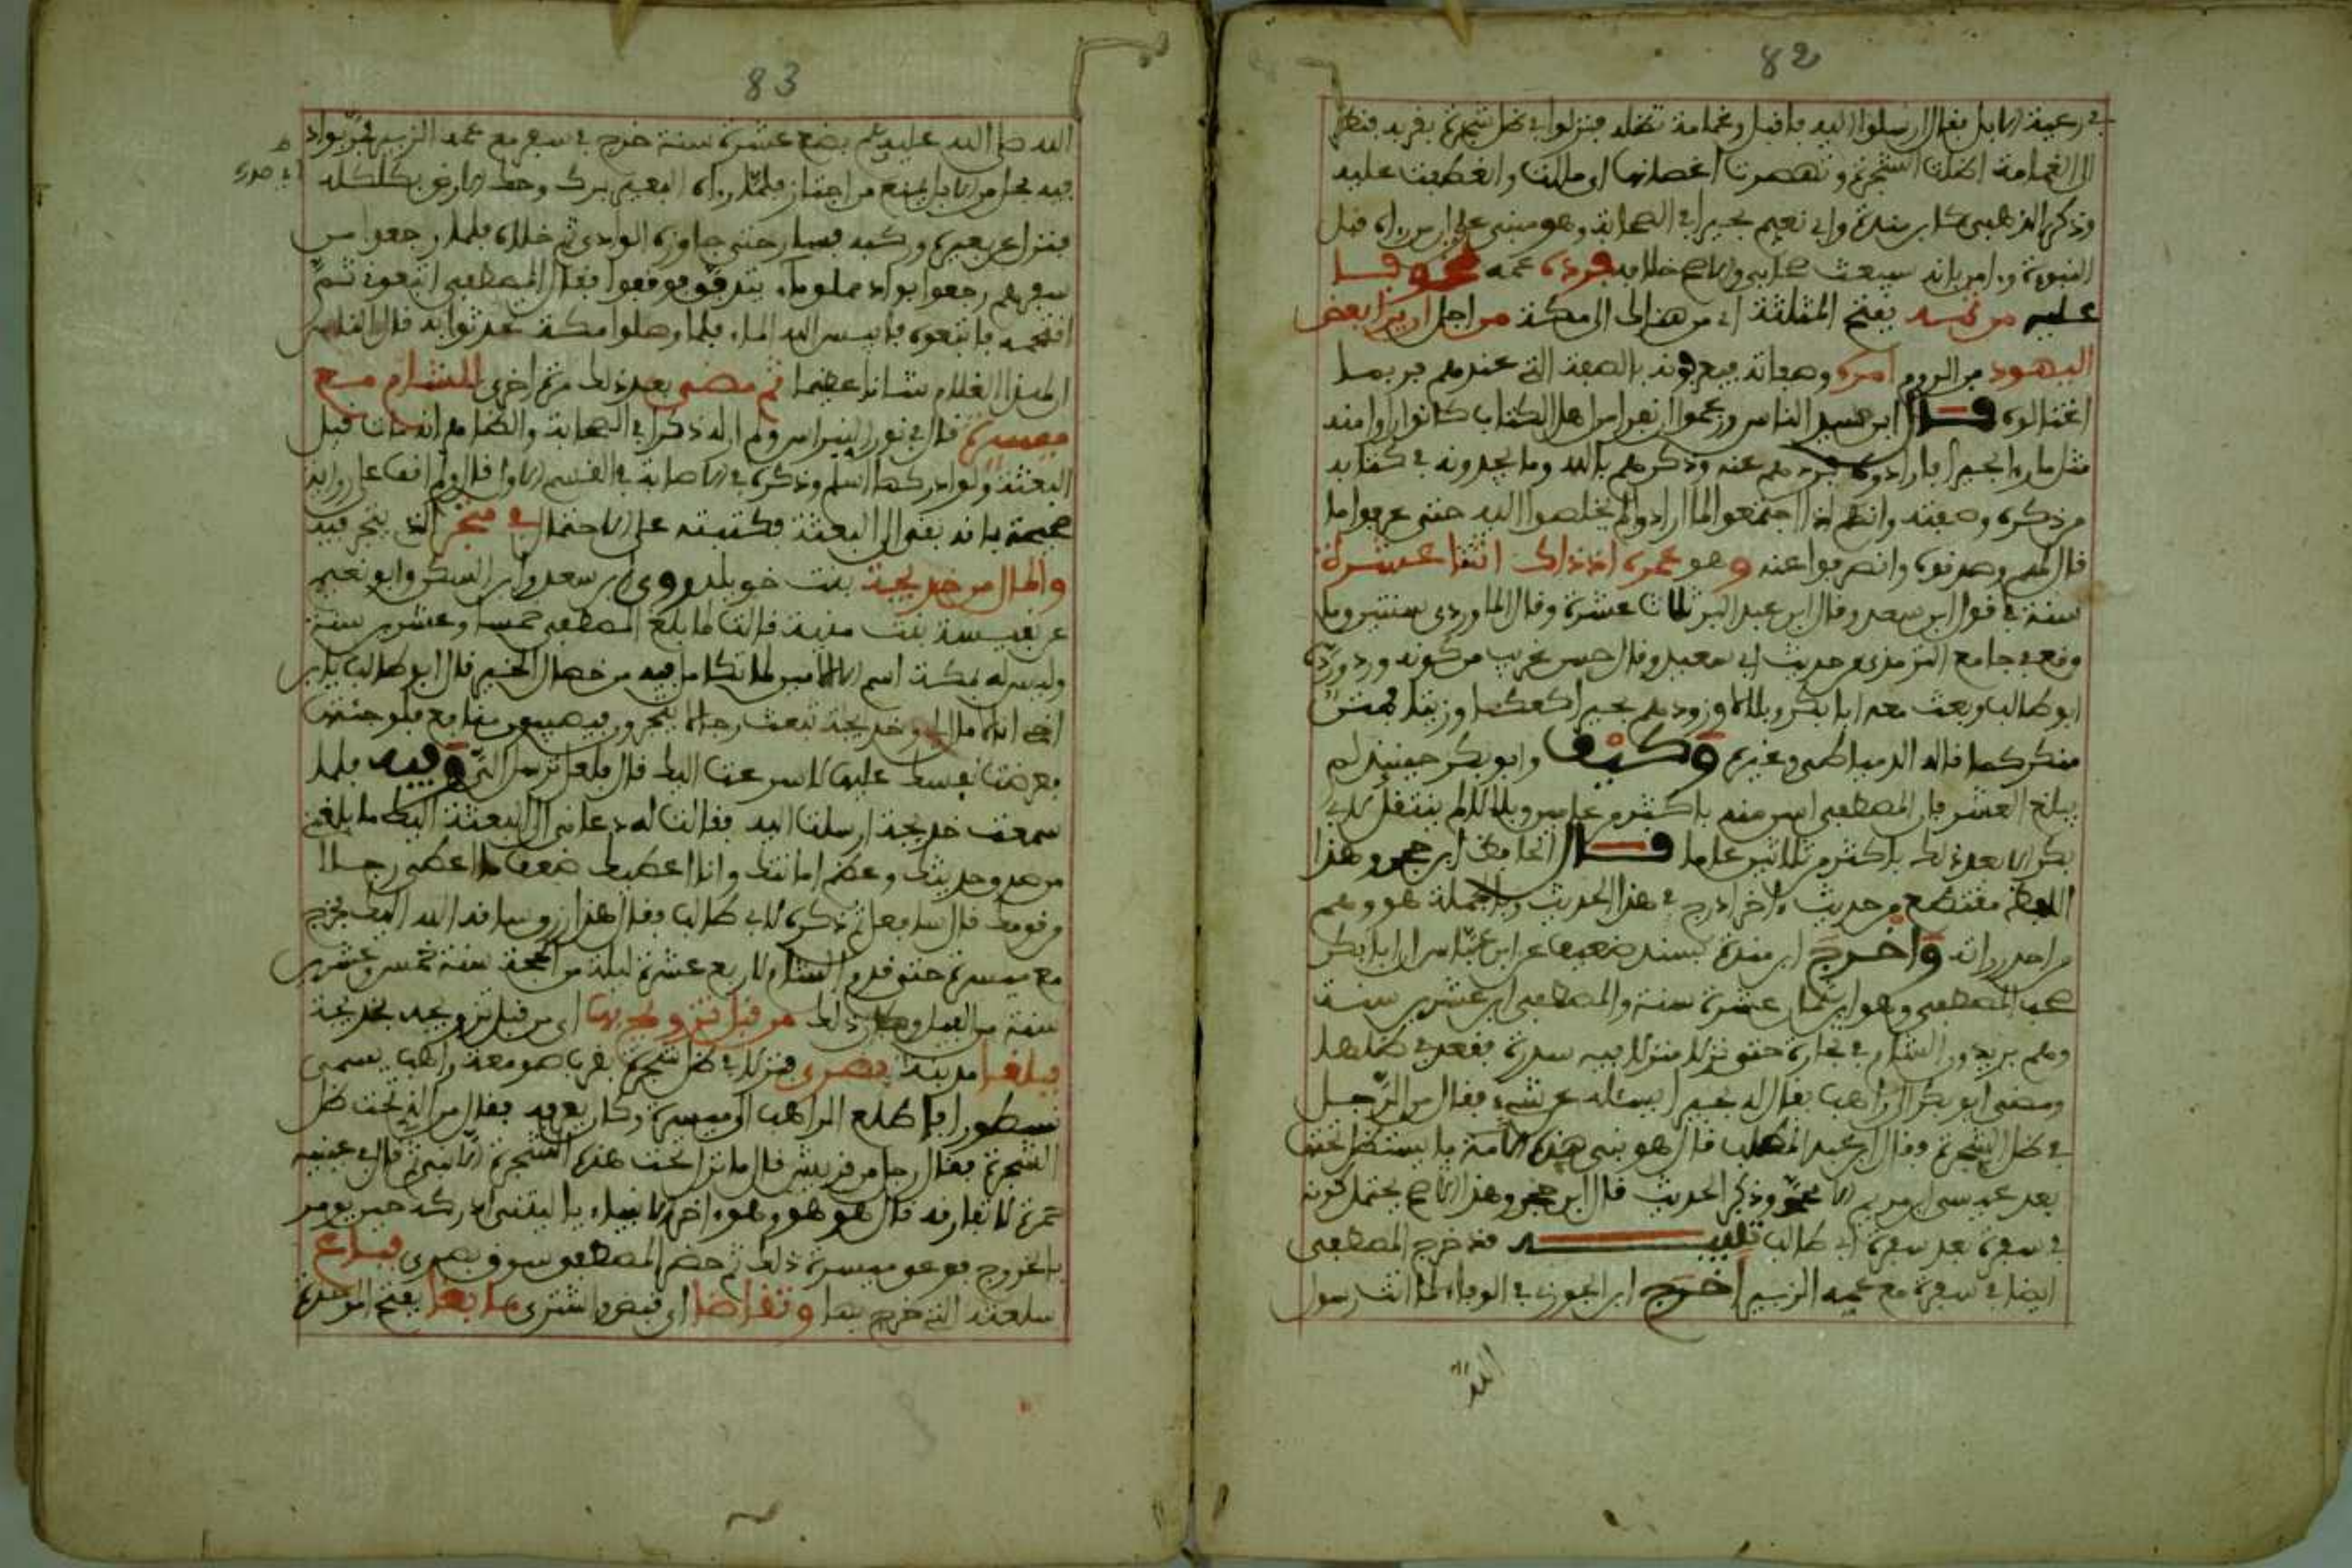 82
في رعية الابل فقال ارسلوا اليه فاقبل وغمامة تظله فنزلوا في ظل شجرة بقربه فنظر
الى الغمامة اظلت الشجرة وتهصرت اغصانها اي مالت وانعطفت عليه
وذكره الذهبي كابن مندة وابي نعيم بحيرا في الصحابة وهو مبني على ان من راه قبل
النبوة وءامن بانه سيبعث صحابي والاصح خلافه فرده عمه تخوفا
عليه من ثمه بفتح المثلثة اي من هنالك الى مكة من اجل ان يرا بعض
اليهود من الروم امره وصفاته فيعرفونه بالصفة التي عندهم فربما
اغتالوه قال ابن سيد الناس وزعموا ان نفرا من اهل الكتاب كانوا راوا منه
مثل ما رءاه بحيرا فارادوه فردهم عنه وذكرهم بالله وما يجدونه في كتابه
من ذكره وصفته وانهم اذا اجتمعوا لما ارادوا لم يخلصوا اليه حتى عرفوا ما
قال لهم وصدقوه وانصرفوا عنه وهو عمره اذ ذاك اثنا عشرة
سنة في قول ابن سعد وقال ابن عبد البر ثلاث عشرة وقال الماوردي سنتين وما
وقع في جامع الترمذي من حديث ابي سعيد وقال حسن غريب من كونه ورد ورده
ابو طالب وبعث معه ابا بكر وبلالا وزودهم بحيرا كعكا وزيتا فهش
منكر كما قاله الدمياطي وغيره وكيف وابو بكر حينئذ لم
يبلغ العشر فان المصطفى اسن منه باكثر من عامين وبلال لم ينتقل لابي
بكر الا بعد ذلك باكثر من ثلاثين عاما قال الحافظ ابن حجر وهذا
اللفظ مقتطع من حديث ءاخر ادرج في هذا الحديث وبالجملة هو وهم
من احد رواته واخرج ابن مندة بسند ضعيف عن ابن عباس ان ابا بكر
صحب المصطفى وهو ابن ثمان عشرة سنة والمصطفى ابن عشرين سنة
وهم يريدون الشام في تجارة حتى نزل منزلا فيه سدرة فقعد في ظلها
ومضى ابو بكر الى راهب يقال له بحيرا يسئله عن شيء فقال من الرجل
في ظل الشجرة فقال ابن عبد المطلب قال هو نبي هذه الامة ما استظل تحتها
بعد عيسى ابن مريم الا محمد وذكر الحديث قال ابن حجر وهذا ان صح يحتمل كونه
في سفرة بعد سفرة ابي طالب تنبيه قد خرج المصطفى
ايضا في سفرة مع عمه الزبير اخرج ابن الجوزي في الوفاء لما اتت رسول
الله
83
الله صلى الله عليه وسلم بضع عشرة سنة خرج في سفر مع عمه الزبير فمروا بواد
فيه فحل من الابل يمنع من اجتاز فلما راه البعير برك وحك الارض بكلكله
اي صدره
فنزل عن بعيره وركبه فسار حتى جاوزه الوادي ثم خلاه فلما رجعوا من
سفرهم رجعوا بواد مملو ماء يتدفق فوقفوا فقال المصطفى اتبعوني ثم
اقتحمه فاتبعوه فايبس الله الماء فلما وصلوا مكة تحدثوا به فقال الناس
ان لهذا الغلام شانا عظيما ثم مضى بعد ذلك مرة اخرى للشام مع
ميسرة قال في نور النبراس ولم ار له ذكرا في الصحابة والظاهر انه مات قبل
البعثة ولو ادركها اسلم وذكره في الاصابة في القسم الاول قال ولم اقف على رواية
صحيحة بانه بقي الى البعثة فكتبته على الاحتمال في متجر الذي يتجر فيه
والمال من خديجة بنت خويلد روى ابن سعد وابن السكن وابو نعيم
عن نفيسة بنت منية قالت لما بلغ المصطفى خمسا وعشرين سنة
وليس له بمكة اسم الا الامين لما تكامل فيه من خصال الخير قال ابو طالب يا ابن
اخي انا لا مال لي وخديجة تبعث رجالا يتجرون فيصيبون منافع فلو جئتها
فعرضت نفسك عليها لاسرعت اليك قال فلعلها ترسل الي وفيه فلما
سمعت خديجة ارسلت اليه فقالت له دعاني الى البعثة اليك ما بلغني
من صدق حديثك وعظم امانتك وانا اعطيك ضعف ما اعطي رجلا
من قومك قال سافعل ثم ذكره لابي طالب فقال هذا رزق ساقه الله اليك فخرج
مع ميسرة حتى قدم الشام لاربع عشرة ليلة من الحجة سنة خمس وعشرين
سنة من الفيل وكان ذلك من قبل تزوجها اي من قبل تزوجه بخديجة
فبلغا مدينة بصرى فنزلا في ظل شجرة بقرب صومعة راهب يسمى
نسطورا فاطلع الراهب الى ميسرة وكان يعرفه فقال من الذي تحت ظل
الشجرة فقال رجل من قريش قال ما نزل تحت هذه الشجرة الا نبي ثم قال في عينيه
حمرة لا تفارقه قال هو هو وهو ءاخر الانبياء يا ليتني ادركه حين يومر
بالخروج فوعى ميسرة ذلك ثم حضر المصطفى سوق بصرى فباع
سلعته التي خرج بها وتقاضا اي قبض واشترى ما بغا بفتح الموحدة